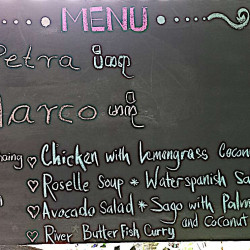 MENU
Petra
Marco
Chicken with Lemongrass Coconu
Roselle Soup * Waterspanish Sa
Avocado Salad * Sago with Palm
and Coconut
River Butter Fish Curry